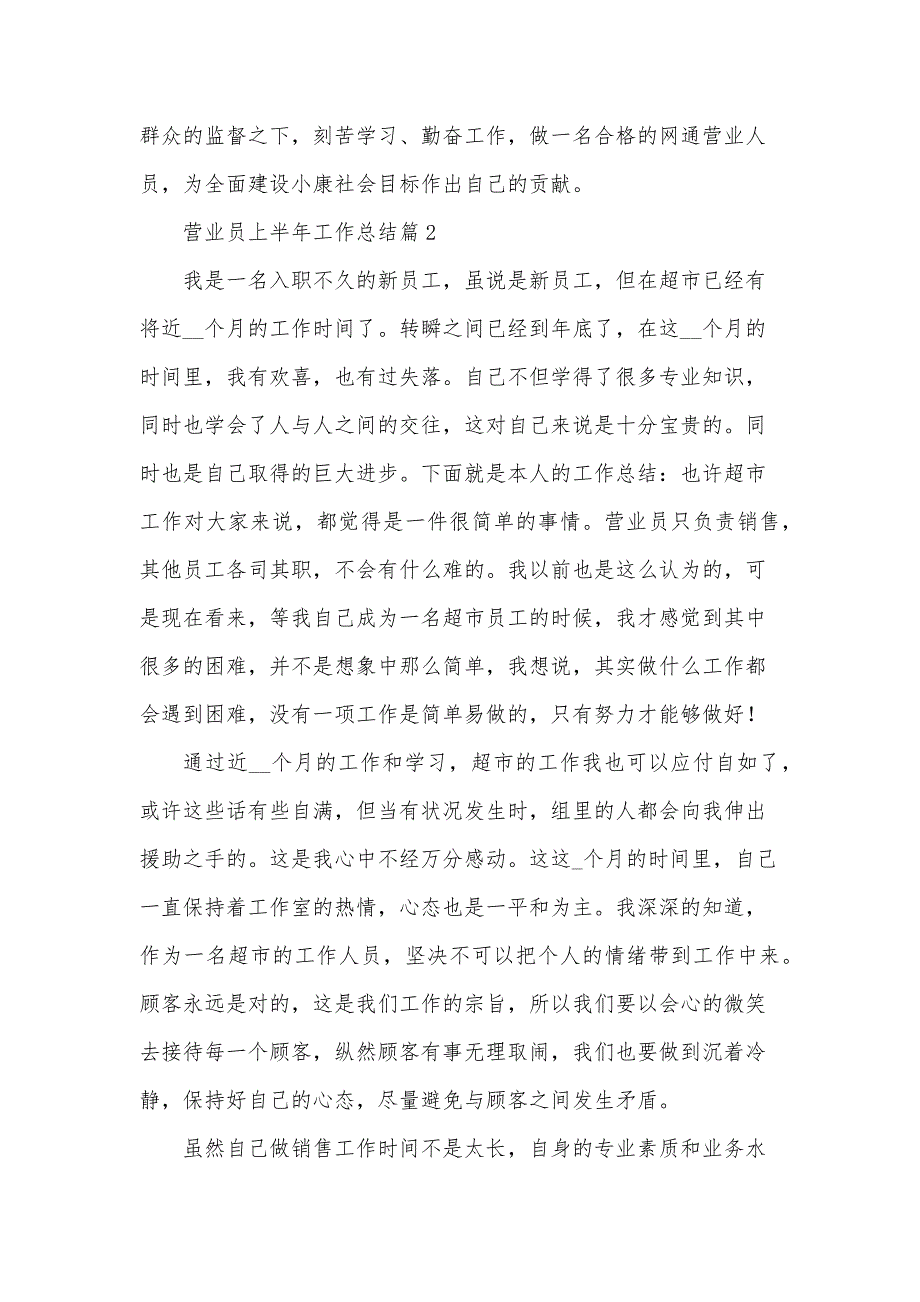 群众的监督之下，刻苦学习、勤奋工作，做一名合格的网通营业人
员，为全面建设小康社会目标作出自己的贡献。
营业员上半年工作总结篇 2
我是一名入职不久的新员工，虽说是新员工，但在超市已经有
将近__个月的工作时间了。转瞬之间已经到年底了，在这__个月的
时间里，我有欢喜，也有过失落。自己不但学得了很多专业知识，
同时也学会了人与人之间的交往，这对自己来说是十分宝贵的。同
时也是自己取得的巨大进步。下面就是本人的工作总结：也许超市
工作对大家来说，都觉得是一件很简单的事情。营业员只负责销售，
其他员工各司其职，不会有什么难的。我以前也是这么认为的，可
是现在看来，等我自己成为一名超市员工的时候，我才感觉到其中
很多的困难，并不是想象中那么简单，我想说，其实做什么工作都
会遇到困难，没有一项工作是简单易做的，只有努力才能够做好！
通过近__个月的工作和学习，超市的工作我也可以应付自如了，
或许这些话有些自满，但当有状况发生时，组里的人都会向我伸出
援助之手的。这是我心中不经万分感动。这这_个月的时间里，自己
一直保持着工作室的热情，心态也是一平和为主。我深深的知道，
作为一名超市的工作人员，坚决不可以把个人的情绪带到工作中来。
顾客永远是对的，这是我们工作的宗旨，所以我们要以会心的微笑
去接待每一个顾客，纵然顾客有事无理取闹，我们也要做到沉着冷
静，保持好自己的心态，尽量避免与顾客之间发生矛盾。
虽然自己做销售工作时间不是太长，自身的专业素质和业务水